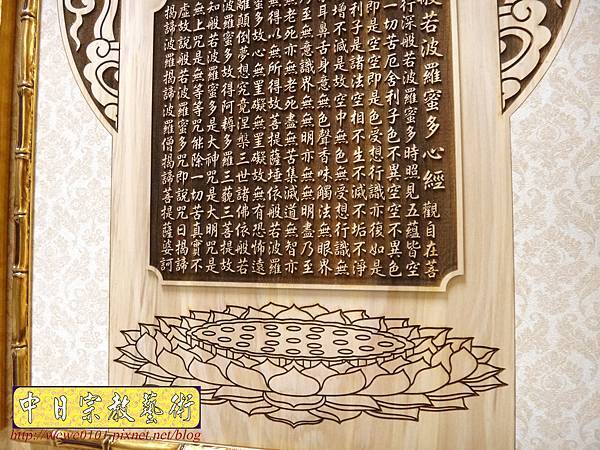 般若波羅蜜多心經 觀自在菩
行深般若波羅蜜多時照見五蘊皆空
一切苦厄舍利子色不異空空不異色
即是空空即是色受想行識亦復如是
利子是諸法空相不生不滅不垢不淨
增不減是故空中無色無受想行識無
耳鼻舌身意無色聲香味觸法無眼界
乃至無意識界無無明亦無無明盡乃至
無老死亦無老死盡無苦集滅道無智亦
無得以無所得故菩提薩埵依般若波羅
蜜多故心無罣礙無罣礙故無有恐怖遠
離顛倒夢想究竟涅槃三世諸佛依般若
波羅蜜多故得阿耨多羅三藐三菩提故
知般若波羅蜜多是大神咒是大明咒是
無上咒是無等等咒能除一切苦真實不
虛故說般若波羅蜜多咒即說咒曰揭諦
揭諦波羅揭諦波羅僧揭諦菩提薩婆訶
中日宗教藝術
http://wewe0101.pixnet.net/blog